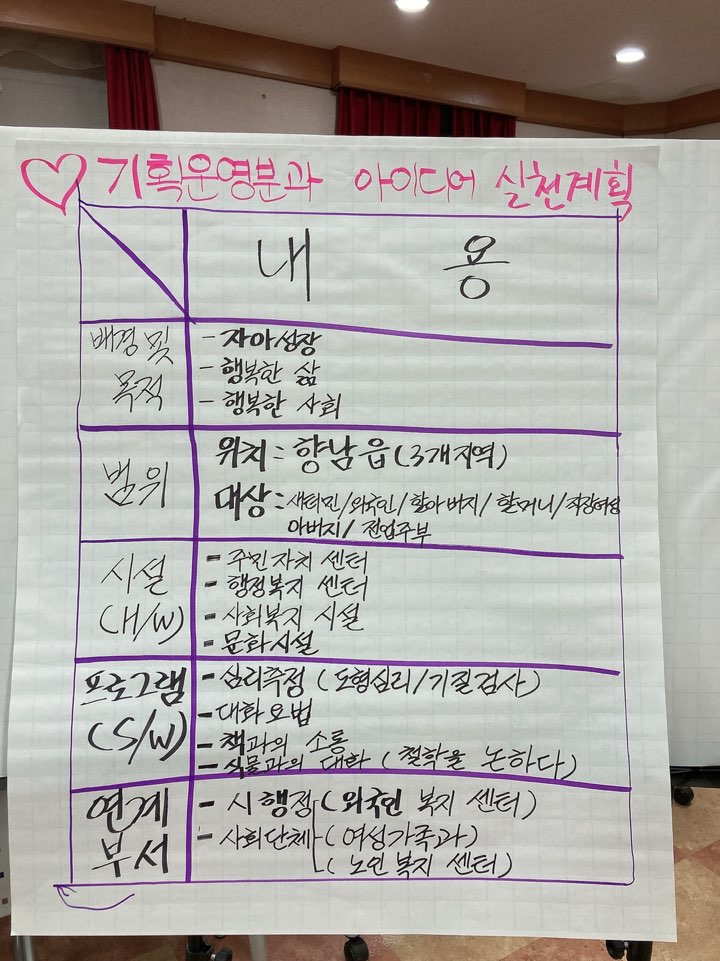 ♡ 기획운영분과 아이디어 실천계획
내 용
배경 및 목적
- 자아성장
- 행복한 삶
- 행복한 사회
범위
위치 : 향남읍 (3개지역)
대상 : 새터민/외국인/할아버지/할머니/직장여성
아버지/전업주부
시설
(H/W)
- 주민자치 센터
- 행정복지 센터
- 사회복지 시설
- 문화시설
프로그램
(S/W)
- 심리측정 (도형심리/기질검사)
- 대화요법
- 책과의 소통
- 식물과의 대화 (철학을 논하다)
연계
부서
- 시행정 (외국인 복지 센터)
- 사회단체 (여성가족과)
(노인복지 센터)